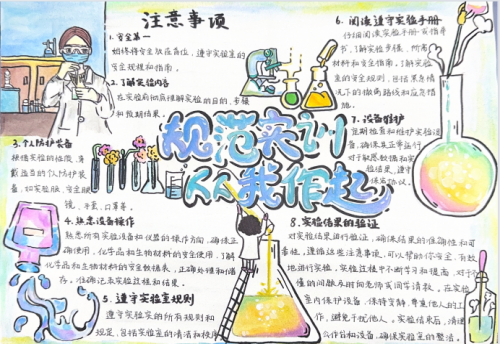 注意事项
1.安全第一
始终将安全放在首位，遵守实验室的
安全规程和指南。
2.了解实验内容
在实验前彻底理解实验的目的、步骤
和预期结果。
3.个人防护装备
根据实验的性质，穿
戴适当的个人防护装
备，如实验服、安全眼
镜、手套、口罩等。
4.熟悉设备操作
熟悉所有实验设备和仪器的操作方向，确保正
确使用，化学品和生物材料的安全使用，了解
化学品和生物材料的安全数据表，正确处理和储
存，准确记录实验过程和结果。
5.遵守实验室规则
遵守实验室的所有规则和
规定，包括实验室的清洁和秩序
规范实训
从我作起
6.阅读遵守实验手册
仔细阅读实验手册和指导
书，了解实验步骤、所
材料和安全指南，了解实验
室的安全规则，包括紧急情
况下的做向路线和应急措
施。
7.设备维护
定期检查和维护实验设
备，确保其正常运行
对于敏感数据和实
验结果，遵守
保密协议。
8.实验结果的验证
对实验结果进行验证，确保结果的准确性和可
靠性，遵循这些注意事项，可以帮助你安全、有效
地进行实验，实验过程中不断学习和提高，对于不
懂的问题及时向老师或同学请教，在实验
室内保护设备，保持安静，尊重他人的工
作，避免干扰他人。实验结束后，清理
工作台和设备，确保实验室的整洁。